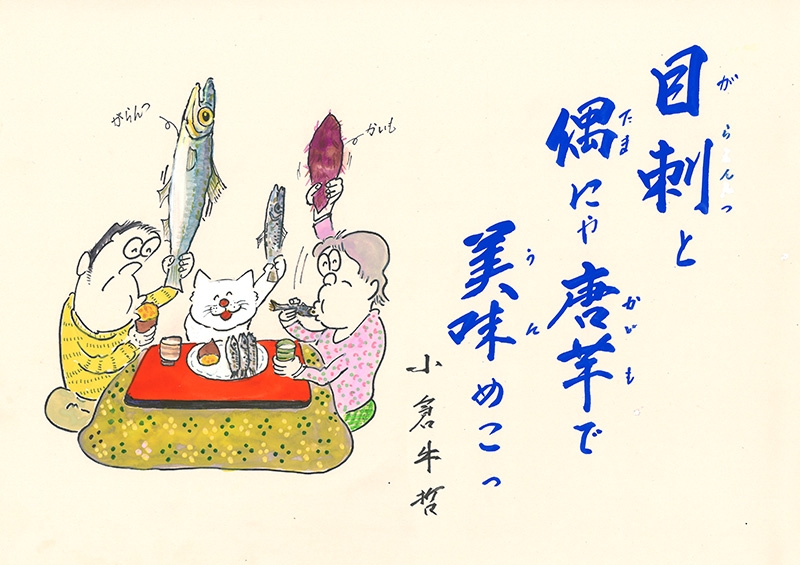 目刺と
がらんつ
偶にや唐芋で
たま
かいも
美味めこっ
うん
小倉牛哲
かいも
がらんつ